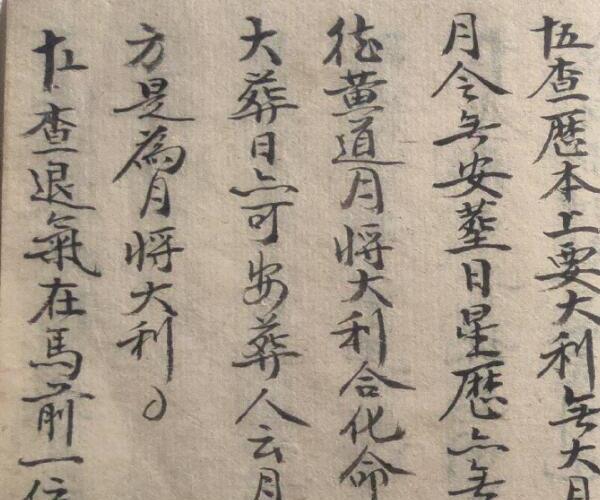 十五查歷本上要大利无大月
月令无安塟日星歷亦无
從黄道月将大利合化命
大葬日亦可安葬人云月
方是為月将大利
查退氣在馬前一位